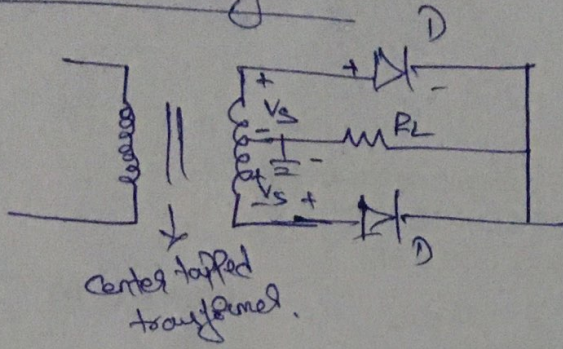 D
+
+
-
Vs
-
RL
-
+
Vs
-
+
D
Center tapped
transformer.